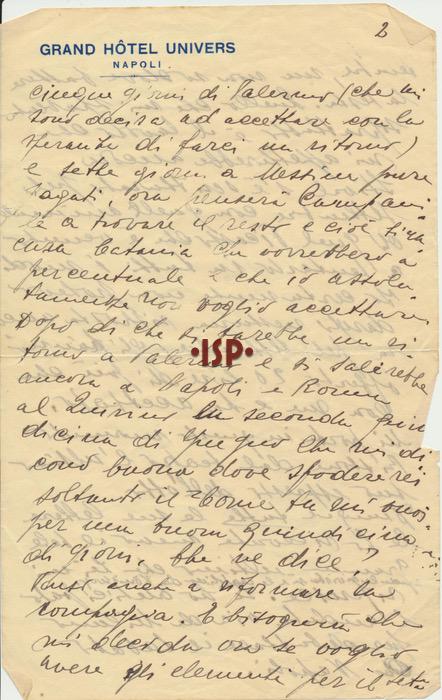 2
GRAND HÔTEL UNIVERS
NAPOLI
cinque giorni di Palermo (che mi
sono decisa ad accettare con la
speranza di farci un ritorno)
e sette giorni a Messina pure
pagati, ora penserà Campani
le a trovare il resto e cioè Sira
cusa Catania che vorrebbero a
percentuale e che io assolu
tamente non voglio accettare.
Dopo di che si farebbe un ri
torno a Palermo e si salirebbe
ancora a Napoli e Roma
al Quirino la seconda quin
dicina di Giugno che mi di
cono buona dove sfodererei
soltanto il "Come tu mi vuoi"
per una buona quindicina
di giorni, che ne dice?
Pensi anche a riformare la
compagnia. E bisognerà che
mi decida ora se voglio
avere gli elementi per il
·ISP·